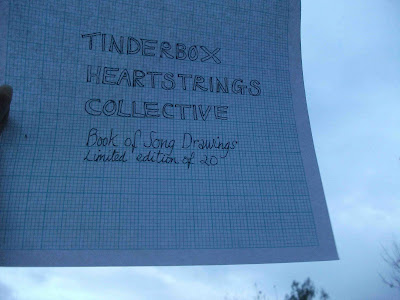 TINDERBOX
HEARTSTRINGS
COLLECTIVE
Book of Song Drawings
Limited edition of 20